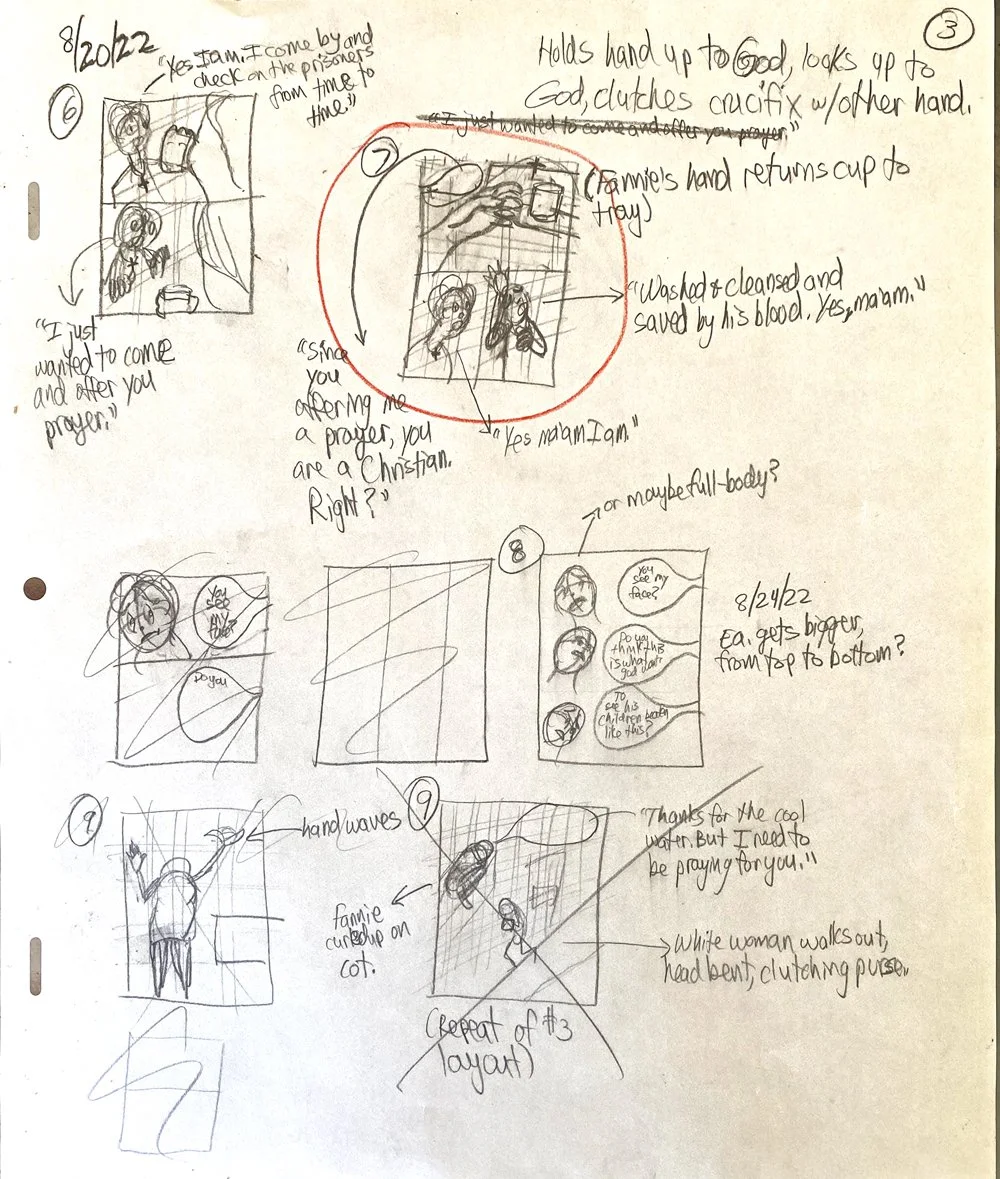 3
8/20/22
"Yes I am. I come by and
check on the prisoners
from time to
time."
6
Holds hand up to God, looks up to
God, clutches crucifix w/other hand.
"I just wanted to come and offer you prayer."
7
(Fannie's hand returns cup to
tray)
"Washed & cleansed and
saved by his blood. Yes, ma'am."
"I just
wanted to come
and offer you
prayer."
"Since
you
offering me
a prayer, you
are a Christian.
Right?"
"Yes ma'am I am."
or maybe full-body?
8
You
see
my
face?
Do you
You
see my
face?
Do you
think this
is what your
god
To
see his
children beaten
like this?
8/24/22
Ea. gets bigger,
from top to bottom?
9
hand waves
9
"Thanks for the cool
water. But I need to
be praying for you."
Fannie
curled up on
cot.
White woman walks out,
head bent, clutching purse.
(Repeat of #3
layout)